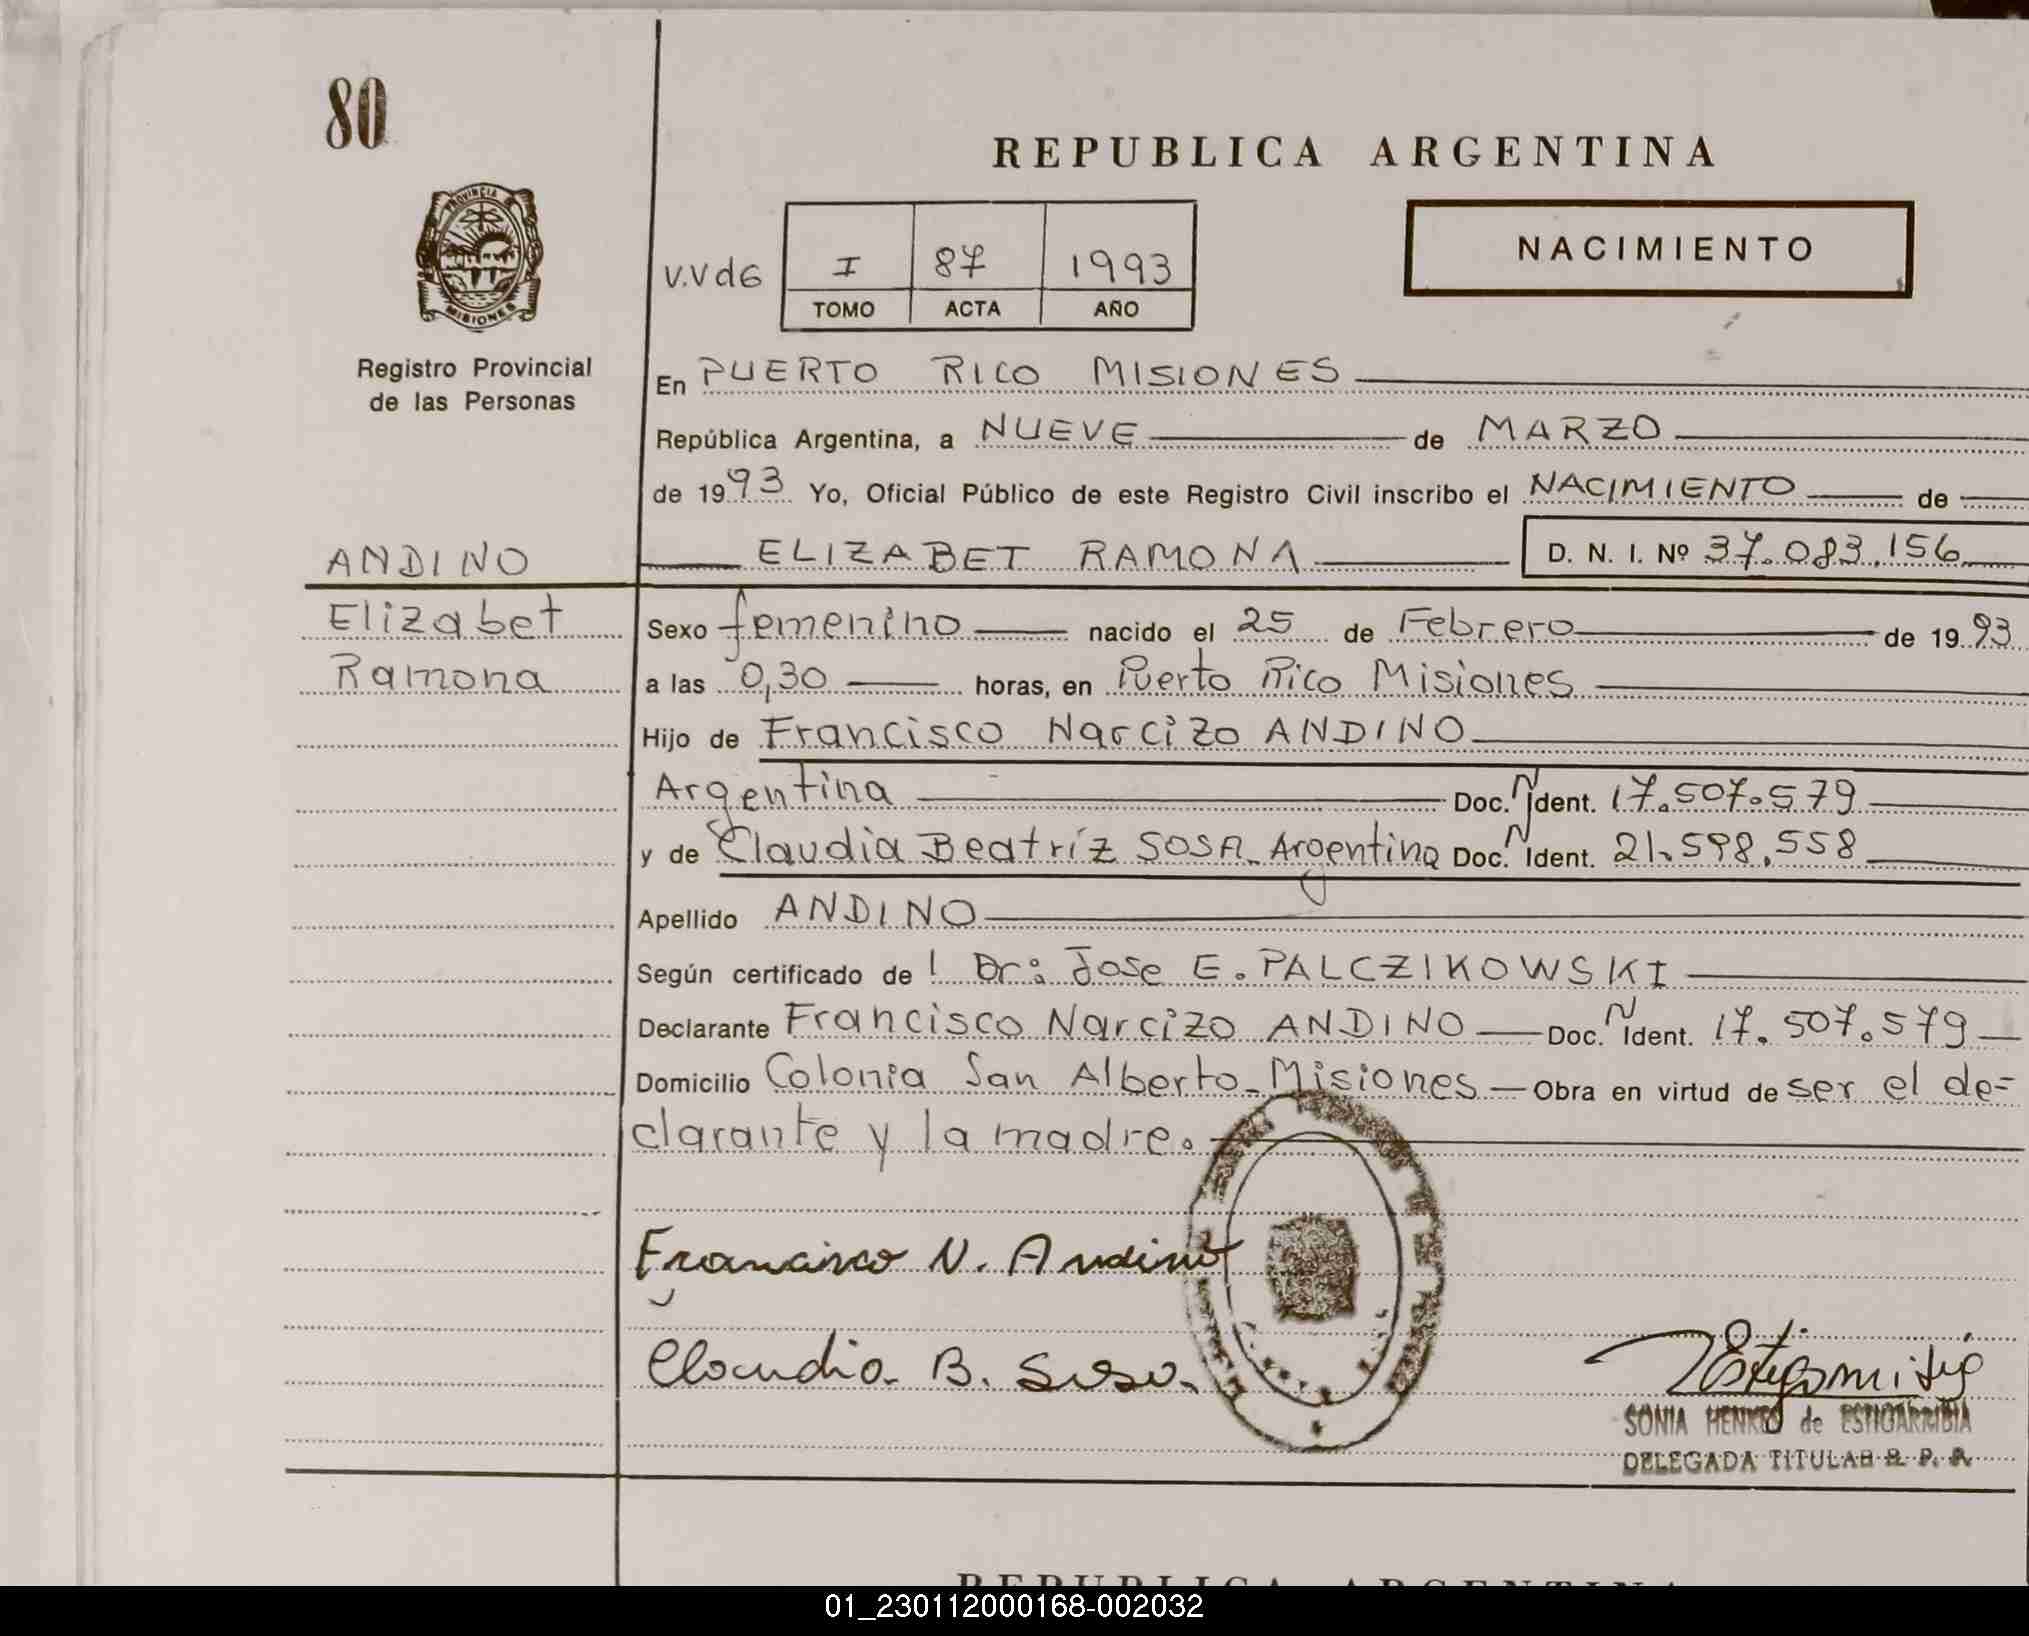 80
REPUBLICA ARGENTINA
PROVINCIA
MISIONES
Registro Provincial
de las Personas
V.VdG
I 87 1993
TOMO ACTA AÑO
NACIMIENTO
En PUERTO RICO MISIONES
República Argentina, a NUEVE de MARZO
de 1993 Yo, Oficial Público de este Registro Civil inscribo el NACIMIENTO de
ELIZABET RAMONA D. N. I. Nº 37.083.156
ANDINO
Elizabet
Ramona
Sexo femenino nacido el 25 de Febrero de 1993
a las 0,30 horas, en Puerto Rico Misiones
Hijo de Francisco Narcizo ANDINO
Argentina Doc. N Ident. 17.507.579
y de Claudia Beatríz SOSA. Argentina Doc. N Ident. 21.598.558
Apellido ANDINO
Según certificado de l Dr: Jose E. PALCZIKOWSKI
Declarante Francisco Narcizo ANDINO Doc. N Ident. 17.507.579
Domicilio Colonia San Alberto - Misiones Obra en virtud de ser el de=
clarante y la madre.
Francisco N. Andino
Claudia B. Sosa.
SONIA de ESTIGARRIBIA
DELEGADA TITULAR R. P. P.
REPUBLICA ARGENTINA
01_230112000168-002032